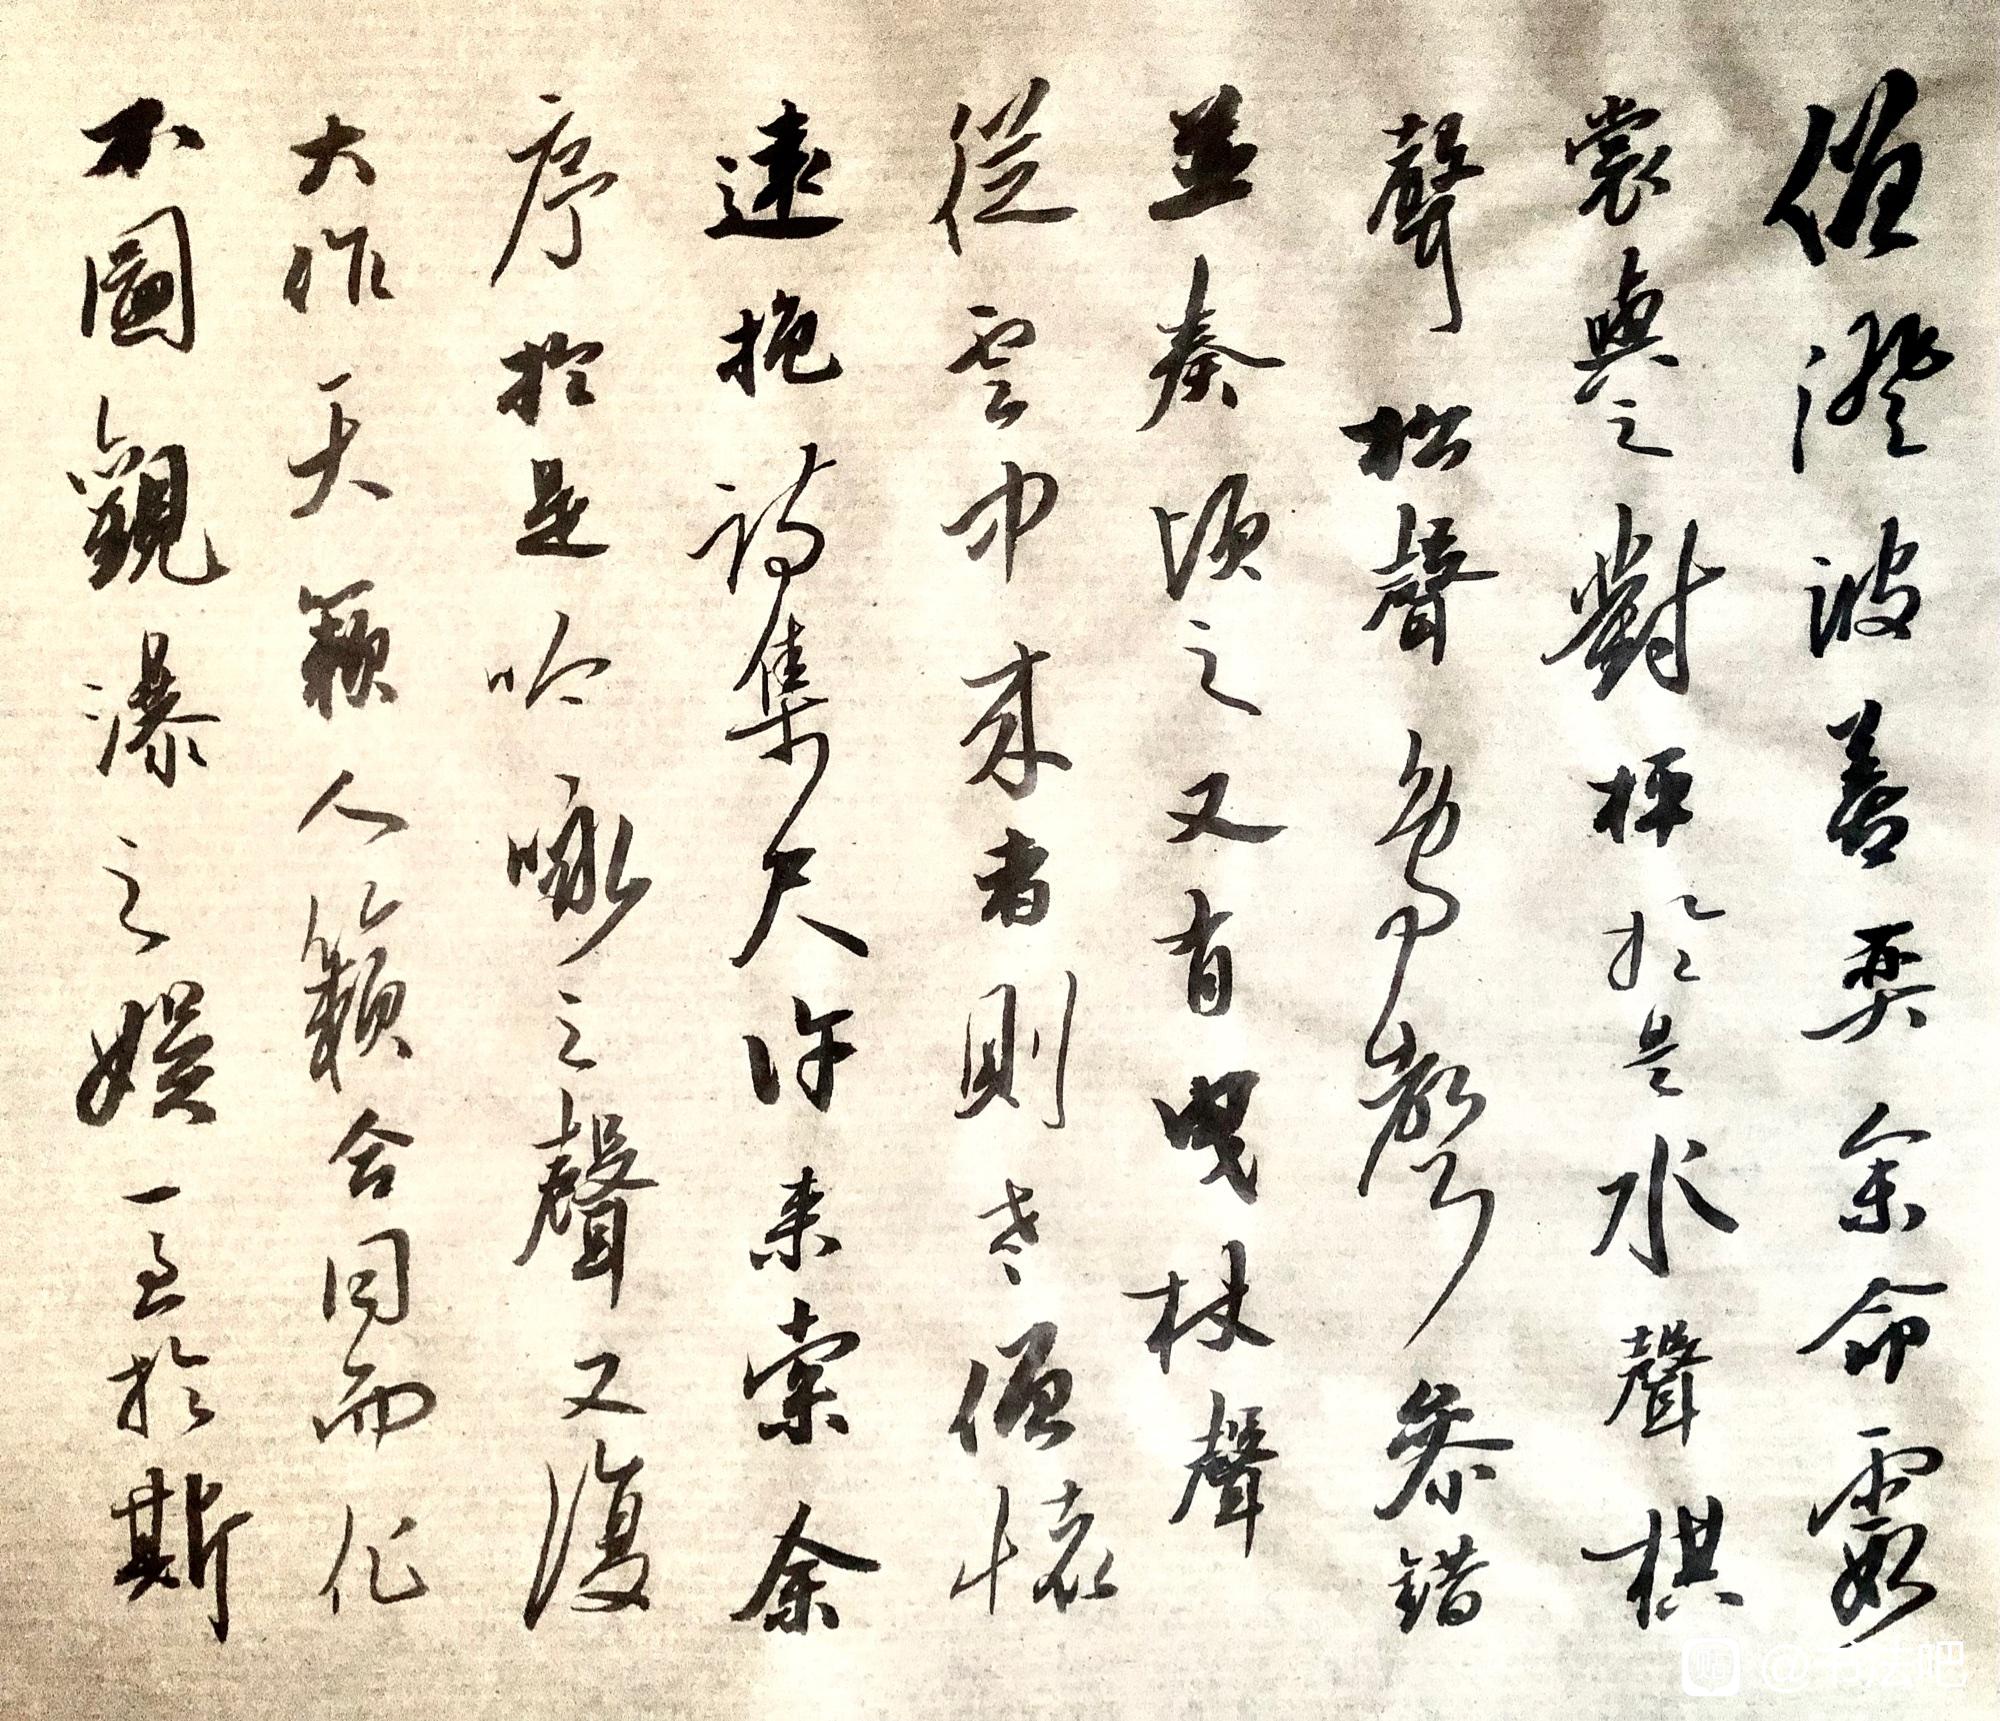 僧澄波善弈余命霞
裳與之對枰於是水聲棋
聲松聲鳥聲參錯
並奏頃之又有曳杖聲
從雲中來者則老僧懷
遠抱詩集尺許來索余
序於是吟咏之聲又復
大作天籟人籟合同而化
不圖觀瀑之娛一至於斯
@书法吧